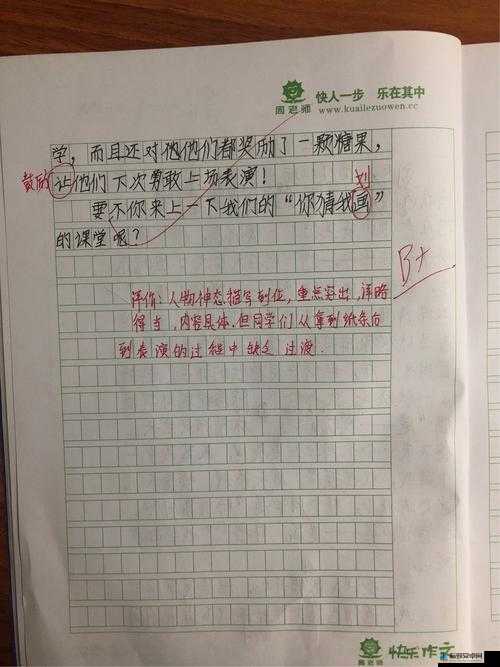 周老师 快人一步 乐在其中
www.kuailezuowen.cc
学，而且还对他他们都奖励了一颗糖果，
鼓励 让他们下次勇敢上场表演！
划
要不你来上一下我们的“你猜我画”
的课堂呢？
B+
评价：人物神态描写到位，重点突出，详略
得当，内容具体.但同学们从拿到纸条后
到表演的过程中缺乏过渡.
周老师 快乐作文